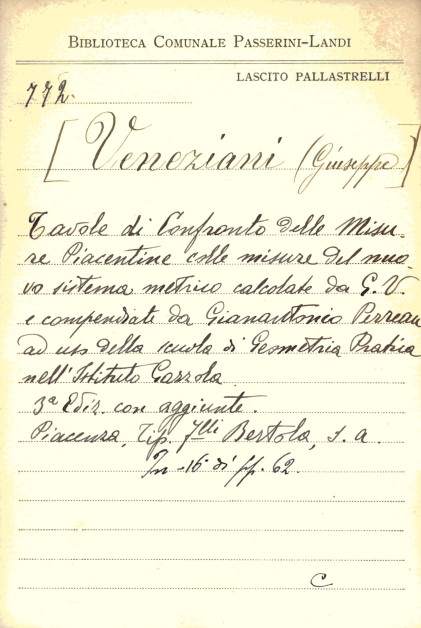 BIBLIOTECA COMUNALE PASSERINI-LANDI
LASCITO PALLASTRELLI
772.
[Veneziani (Giuseppe)]
Tavole di Confronto delle Misu-
re Piacentine colle misure del nuo-
vo sistema metrico calcolate da G. V.
e compendiate da Gianantonio Perreau
ad uso della scuola di Geometria Pratica
nell'Istituto Gazzola.
3ª Ediz. con aggiunte.
Piacenza, Tip. F.lli Bertola, s. a.
In-16 di pp. 62.
C